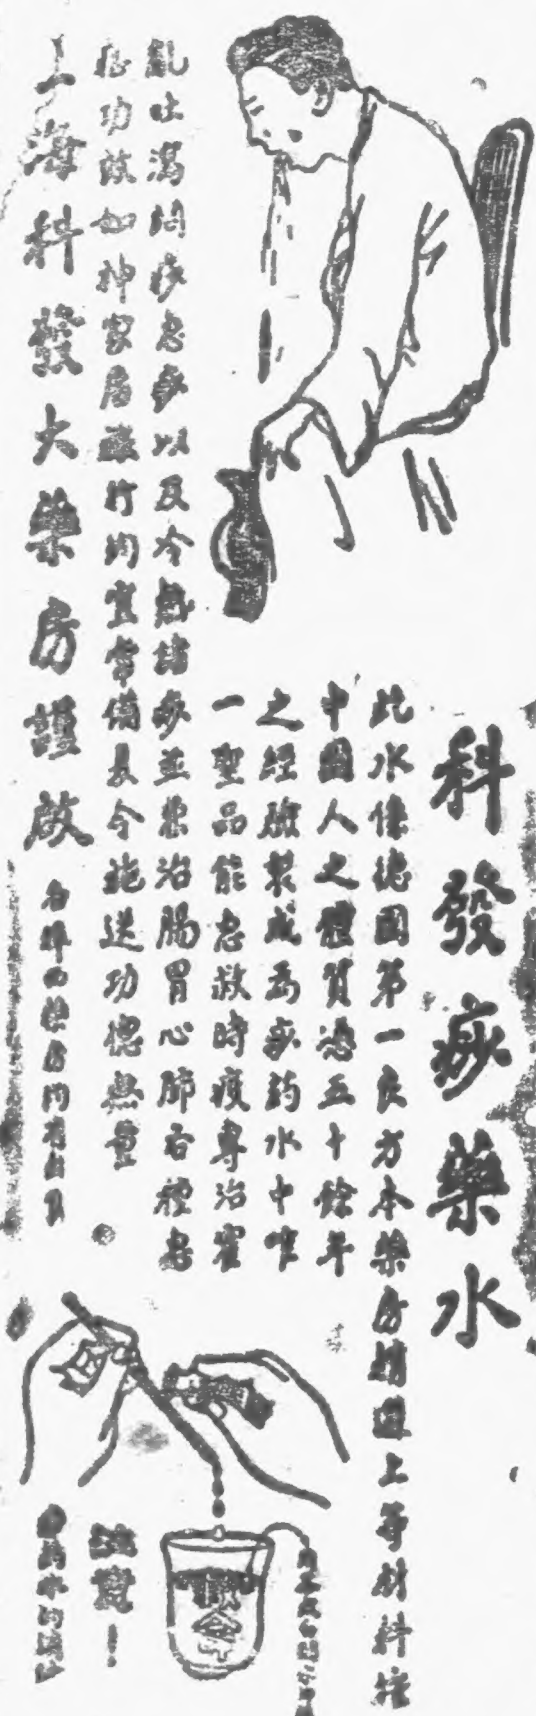 科發痧藥水
此水係德國第一良方本藥房精選上等材料按
中國人之體質憑五十餘年
之經驗製成爲痧药水中唯
一聖品能急救時疫專治霍
亂吐瀉悶痧急痧以及冷熱諸痧並兼治腸胃心肺各種急
症功效如神家居旅行均宜常備夏令施送功德無量
上海科發大藥房謹啟
各埠西藥房均有出售
注意！